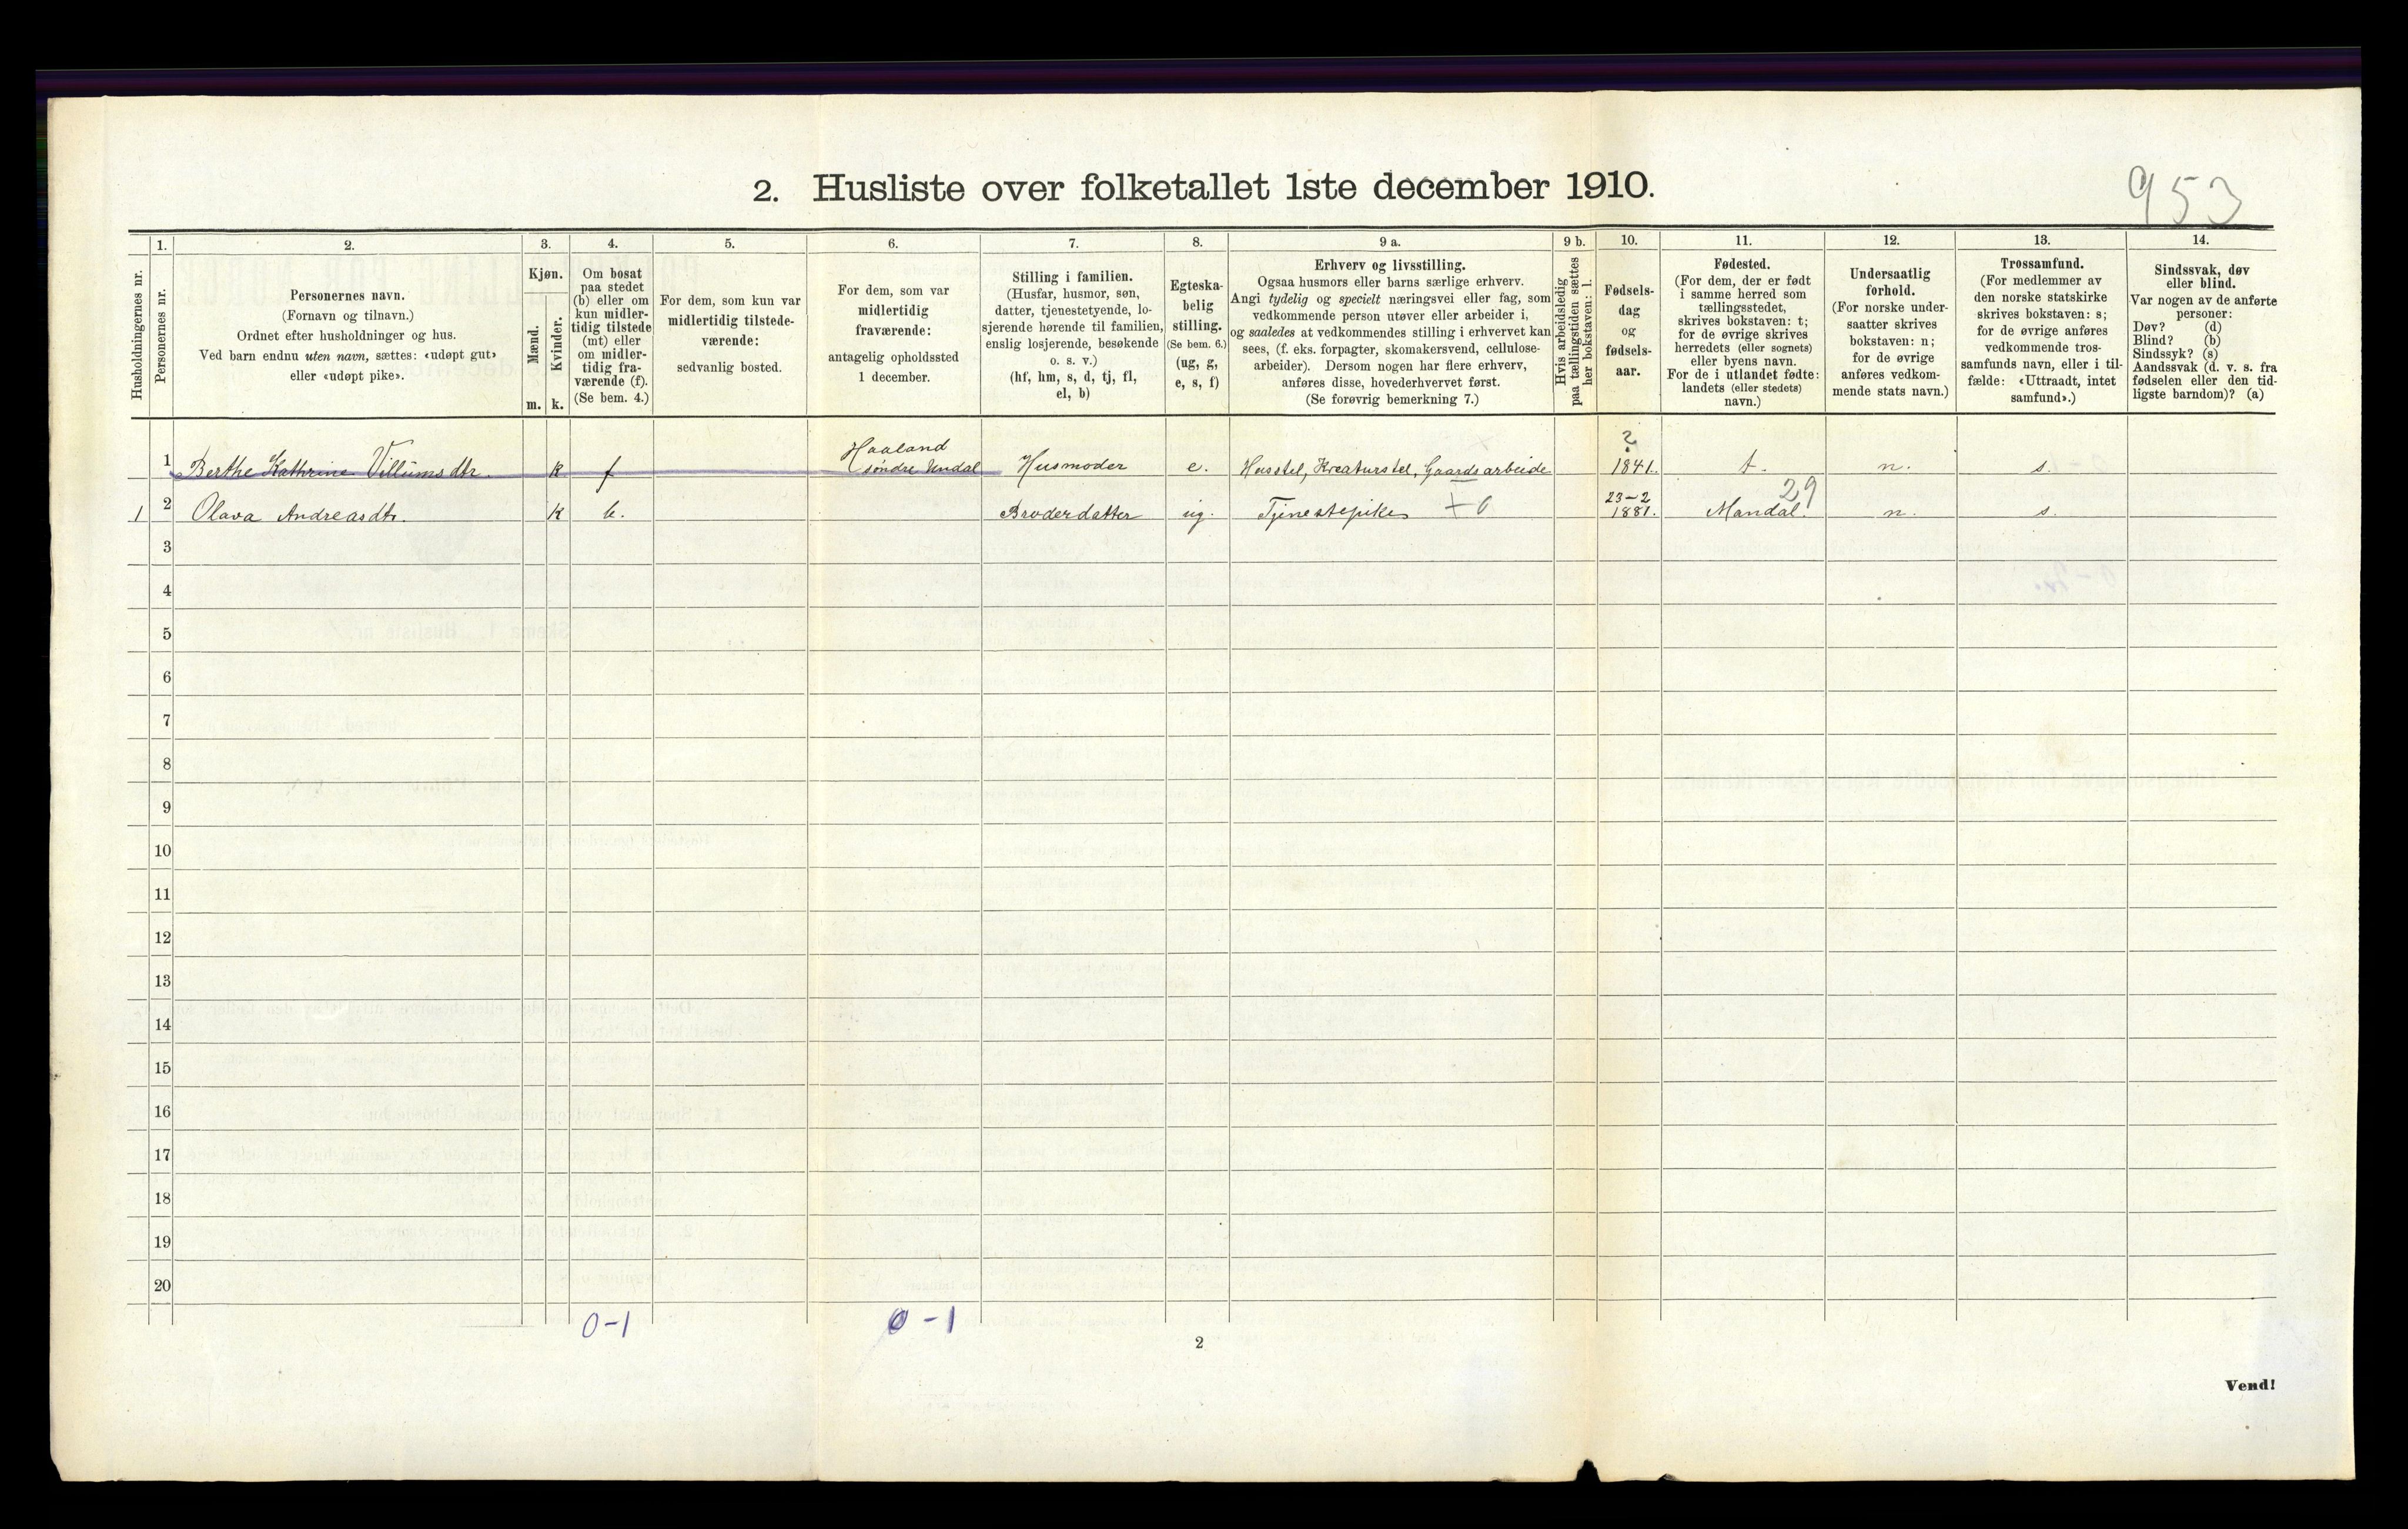 953
2. Husliste over folketallet 1ste december 1910.
Husholdningernes nr.
1.
Personernes nr.
2.
Personernes navn.
(Fornavn og tilnavn.)
Ordnet efter husholdninger og hus.
Ved barn endnu uten navn, sættes: «udøpt gut»
eller «udøpt pike».
3.
Kjøn.
Mænd.
Kvinder.
m. k.
4.
Om bosat
paa stedet
(b) eller om
kun midler-
tidig tilstede
(mt) eller
om midler-
tidig fra-
værende (f).
(Se bem. 4.)
5.
For dem, som kun var
midlertidig tilstede-
værende:
sedvanlig bosted.
6.
For dem, som var
midlertidig
fraværende:
antagelig opholdssted
1 december.
7.
Stilling i familien.
(Husfar, husmor, søn,
datter, tjenestetyende, lo-
sjerende hørende til familien,
enslig losjerende, besøkende
o. s. v.)
(hf, hm, s, d, tj, fl,
el, b)
8.
Egteska-
belig
stilling.
(Se bem. 6.)
(ug, g,
e, s, f)
9 a.
Erhverv og livsstilling.
Ogsaa husmors eller barns særlige erhverv.
Angi tydelig og specielt næringsvei eller fag, som
vedkommende person utøver eller arbeider i,
og saaledes at vedkommendes stilling i erhvervet kan
sees, (f. eks. forpagter, skomakersvend, cellulose-
arbeider). Dersom nogen har flere erhverv,
anføres disse, hovederhvervet først.
(Se forøvrig bemerkning 7.)
9 b.
Hvis arbeidsledig
paa tællingstiden sættes
her bokstaven: l.
10.
Fødsels-
dag
og
fødsels-
aar.
11.
Fødested.
(For dem, der er født
i samme herred som
tællingsstedet,
skrives bokstaven: t;
for de øvrige skrives
herredets (eller sognets)
eller byens navn.
For de i utlandet fødte:
landets (eller stedets)
navn.)
12.
Undersaatlig
forhold.
(For norske under-
saatter skrives
bokstaven: n;
for de øvrige
anføres vedkom-
mende stats navn.)
13.
Trossamfund.
(For medlemmer av
den norske statskirke
skrives bokstaven: s;
for de øvrige anføres
vedkommende tros-
samfunds navn, eller i til-
fælde: «Uttraadt, intet
samfund».)
14.
Sindssvak, døv
eller blind.
Var nogen av de anførte
personer:
Døv? (d)
Blind? (b)
Sindssyk? (s)
Aandssvak (d. v. s. fra
fødselen eller den tid-
ligste barndom)? (a)
1 Berthe Kathrine Villumsdtr. k f Haaland søndre Undal Husmoder e. Husstel, Kreaturstel, Gaardsarbeide ? 1841. t. n. s.
1 2 Olava Andreasdtr. k b. Broderdatter ug. Tjenestepike + 0 23-2 1881. Mandal. 29 n. s.
3
4
5
6
7
8
9
10
11
12
13
14
15
16
17
18
19
20
0-1 0-1
2
Vend!